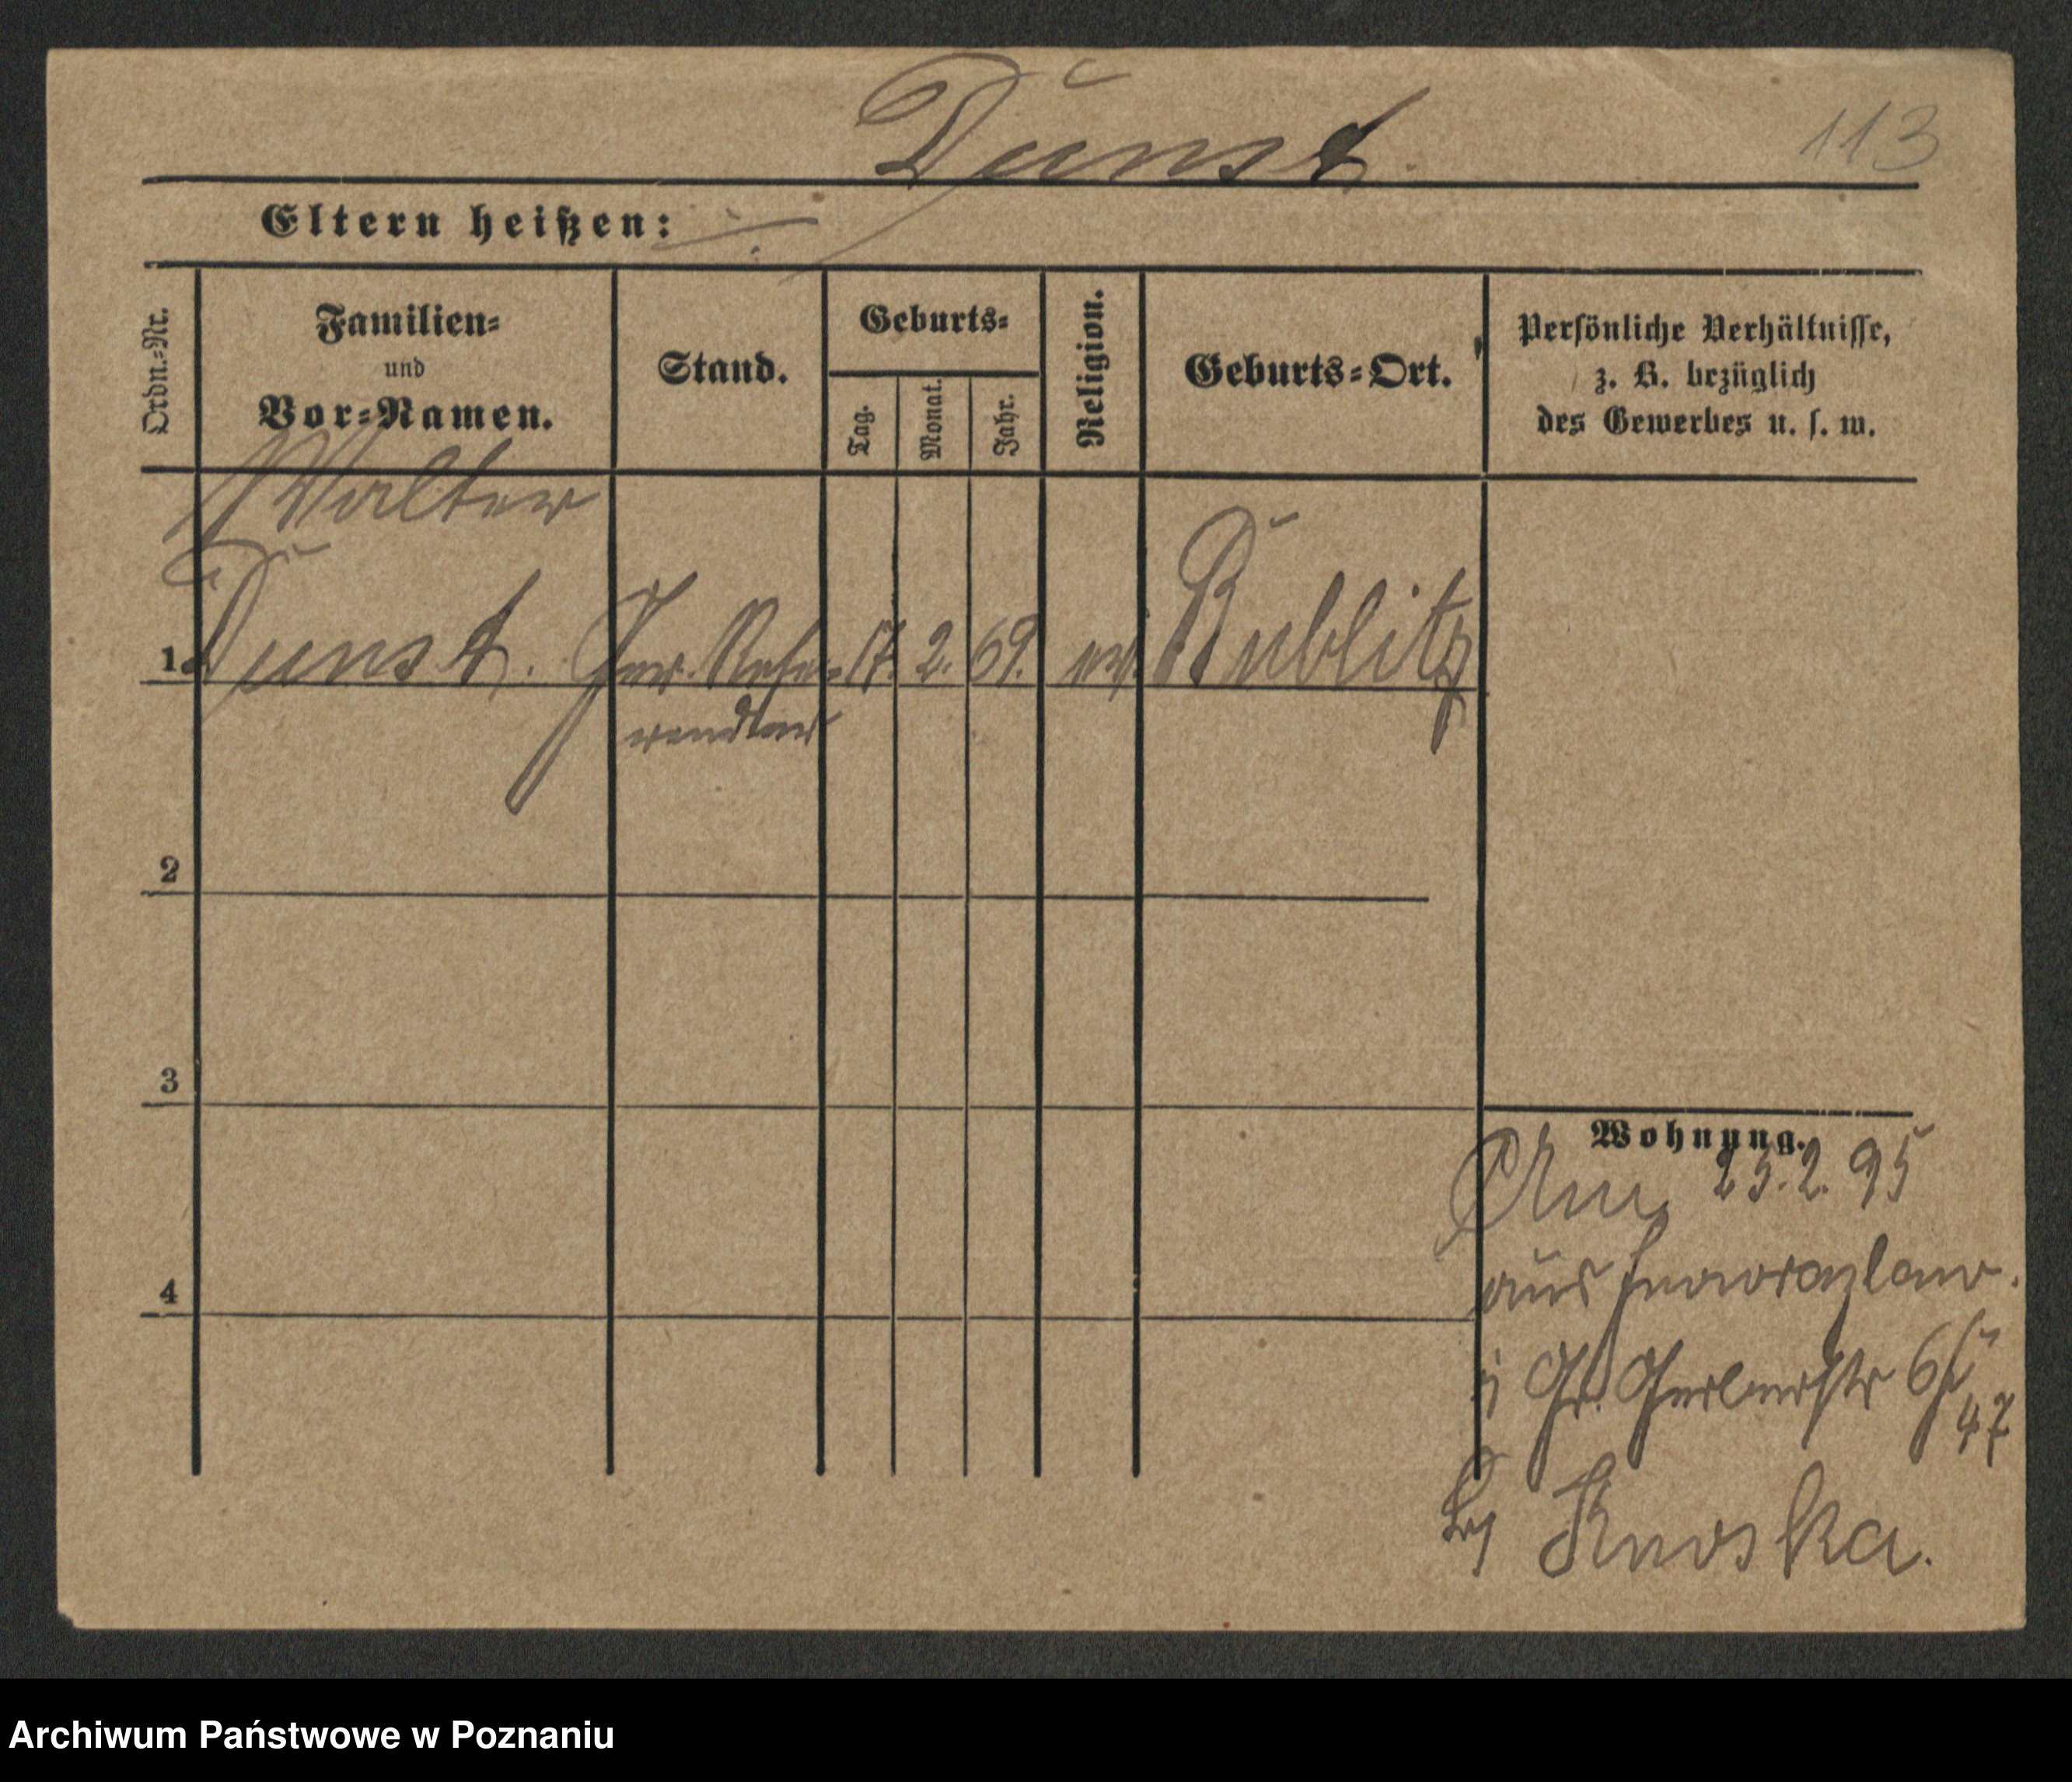 Dunst.
113
Eltern heißen:
Ordn.-Nr.
Familien-
und
Vor-Namen.
Stand.
Geburts-
Tag.
Monat.
Jahr.
Religion.
Geburts-Ort.
Persönliche Verhältnisse,
z. B. bezüglich
des Gewerbes u. s. w.
Walter
1 Dunst. Ger. Refe- 17. 2. 69. ev. Bublitz
rendar
2
3
Wohnung.
Am 25.2.95
4
aus Inowrazlaw.
Gr. Gerberstr
47
bei Knoska.
Archiwum Państwowe w Poznaniu